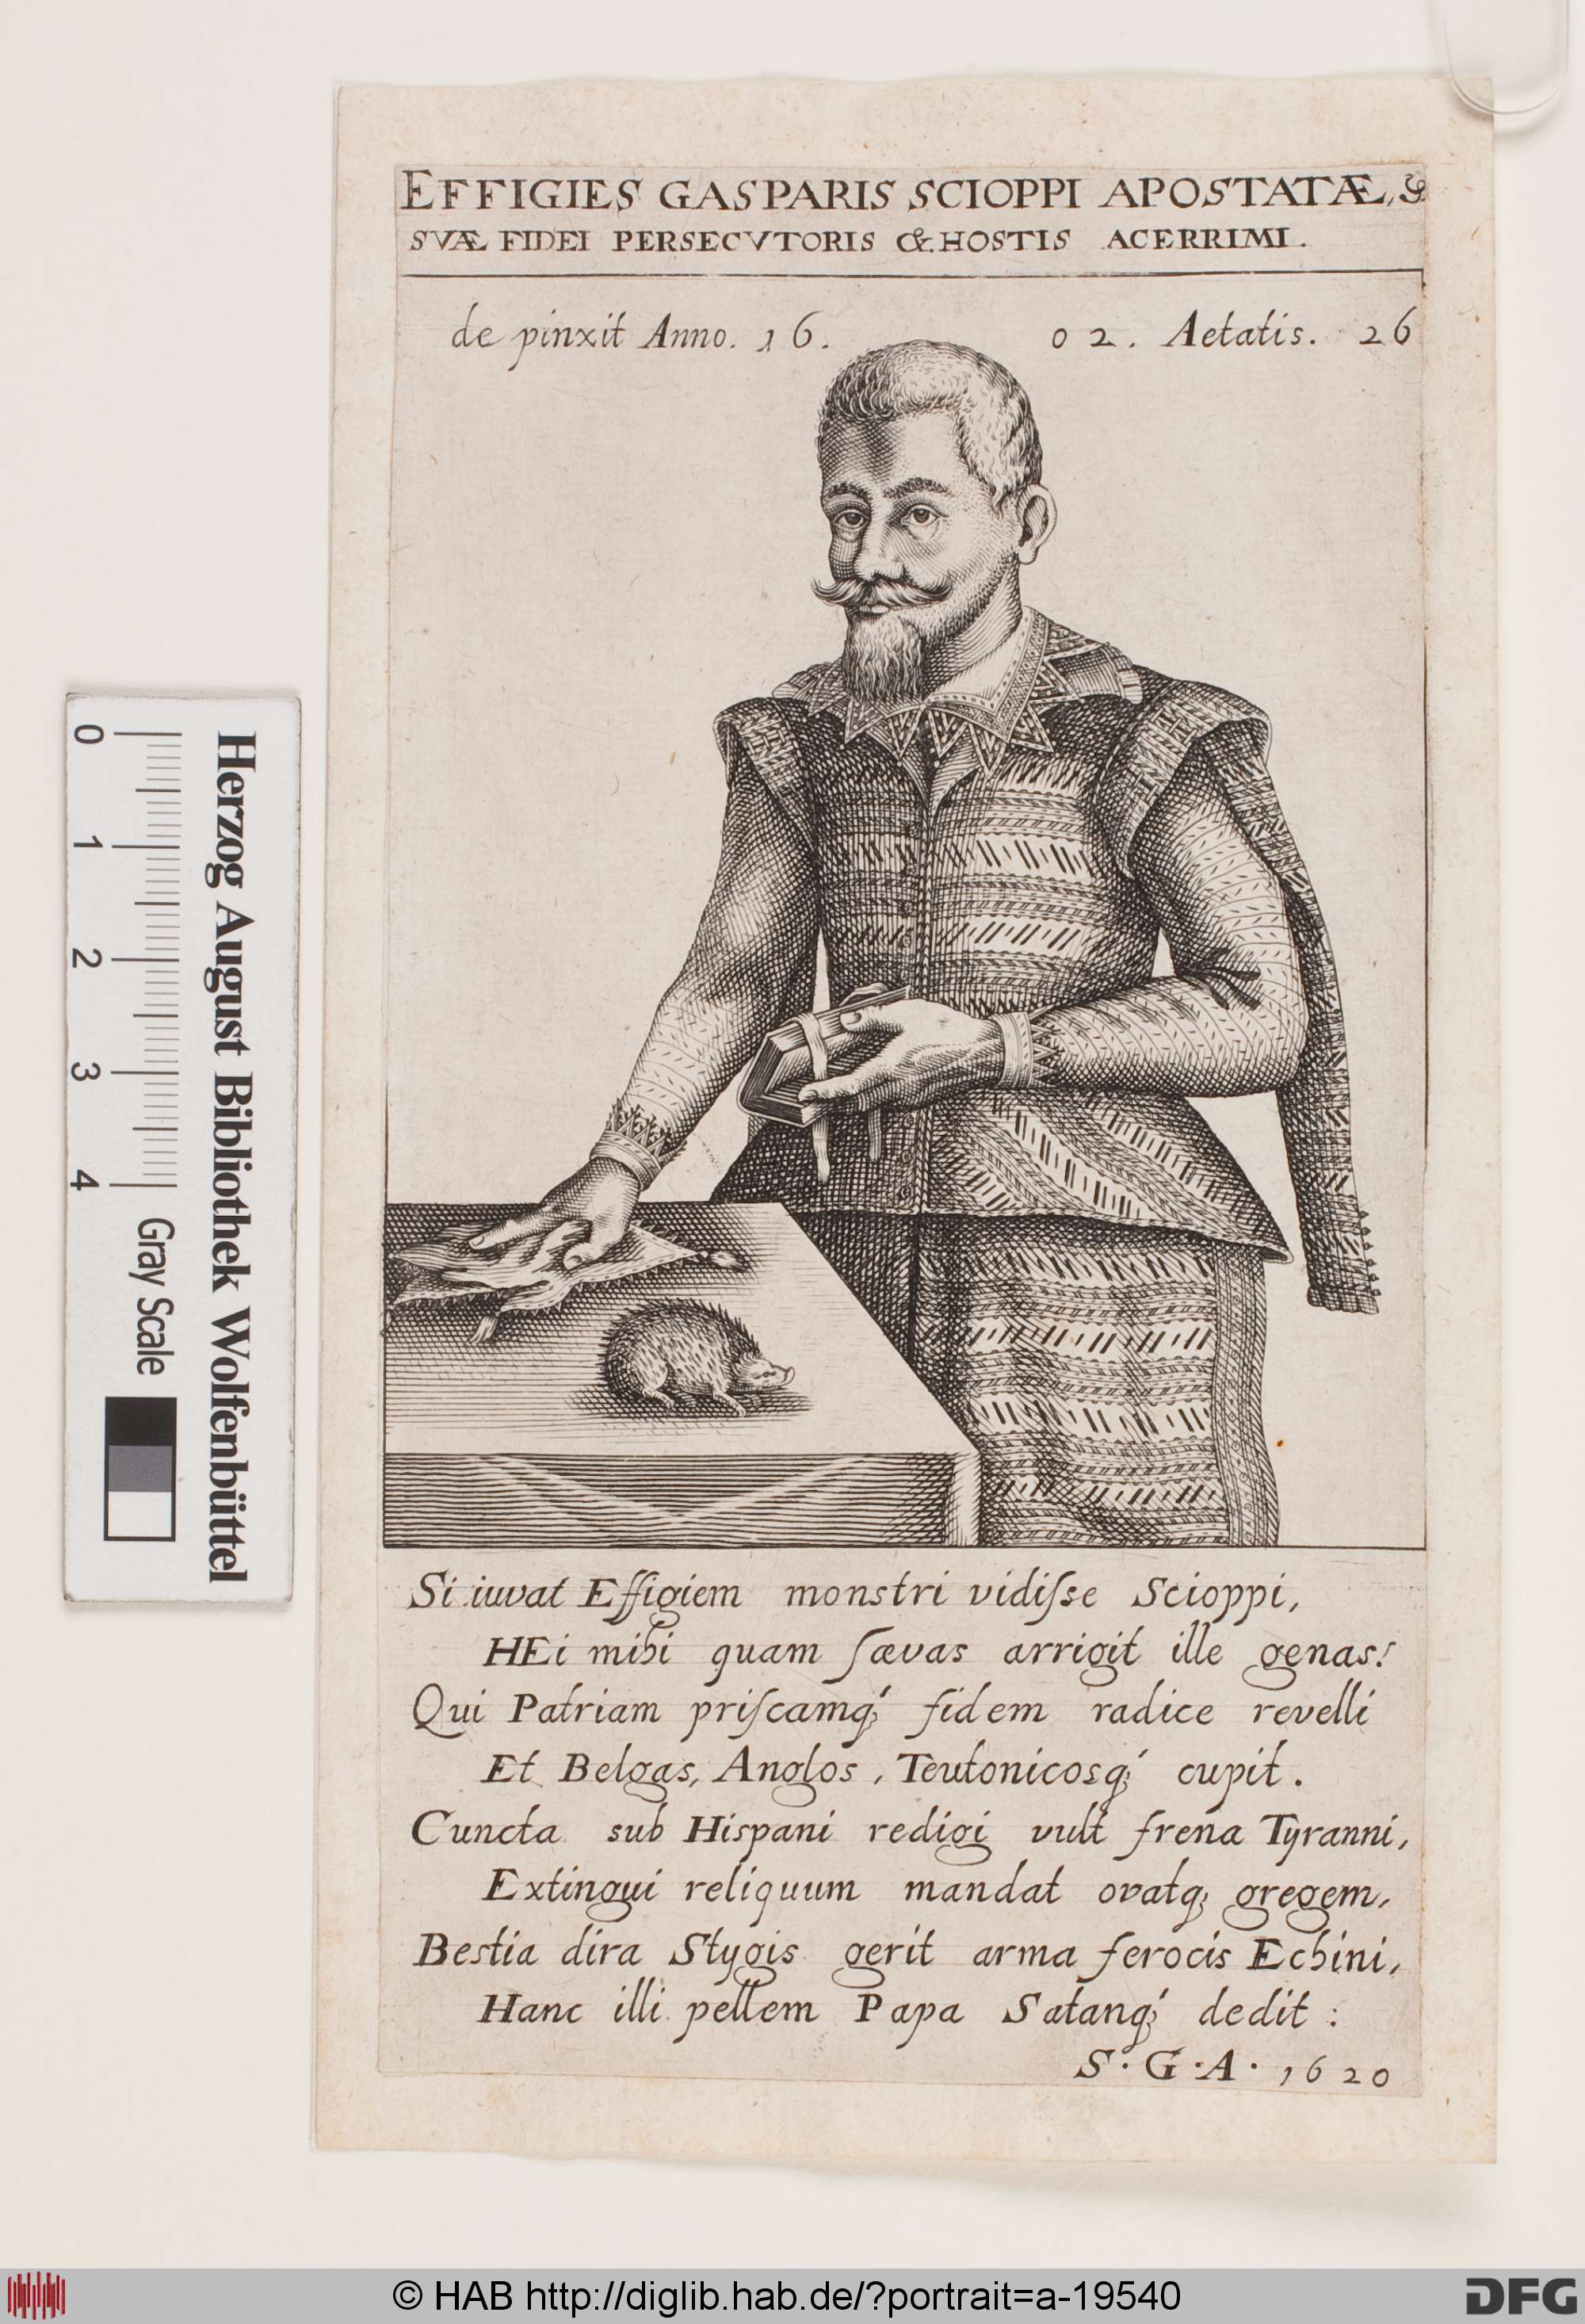 EFFIGIES GASPARIS SCIOPPI APOSTATÆ, &
SVÆ FIDEI PERSECVTORIS & HOSTIS ACERRIMI.
de pinxit Anno. 16. 02. Aetatis. 26
Si iuvat Effigiem monstri vidiſse Scioppi,
HEi mihi quam ſævas arrigit ille genas!
Qui Patriam priſcamq́; fidem radice revelli
Et Belgas, Anglos, Teutonicosq́; cupit.
Cuncta sub Hispani redigi vult frena Tyranni,
Extingui reliquum mandat ovatq; gregem,
Bestia dira Stygis gerit arma ferocis Echini,
Hanc illi pellem Papa Satanq́; dedit:
S·G·A· 1620
Herzog August Bibliothek Wolfenbüttel
0 1 2 3 4 Gray Scale
© HAB http://diglib.hab.de/?portrait=a-19540
DFG